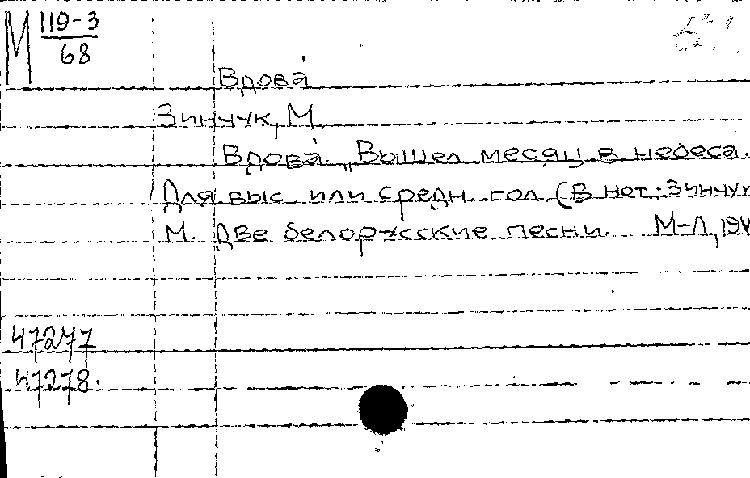 М 119-3
68
Вдова
Зинчук, М.
Вдова. "Вышел месяц в небеса.
Для выс. или средн. гол. (В нот.: Зинчук
М. Две белорусские песни. М-Л, 194
47277
47278.